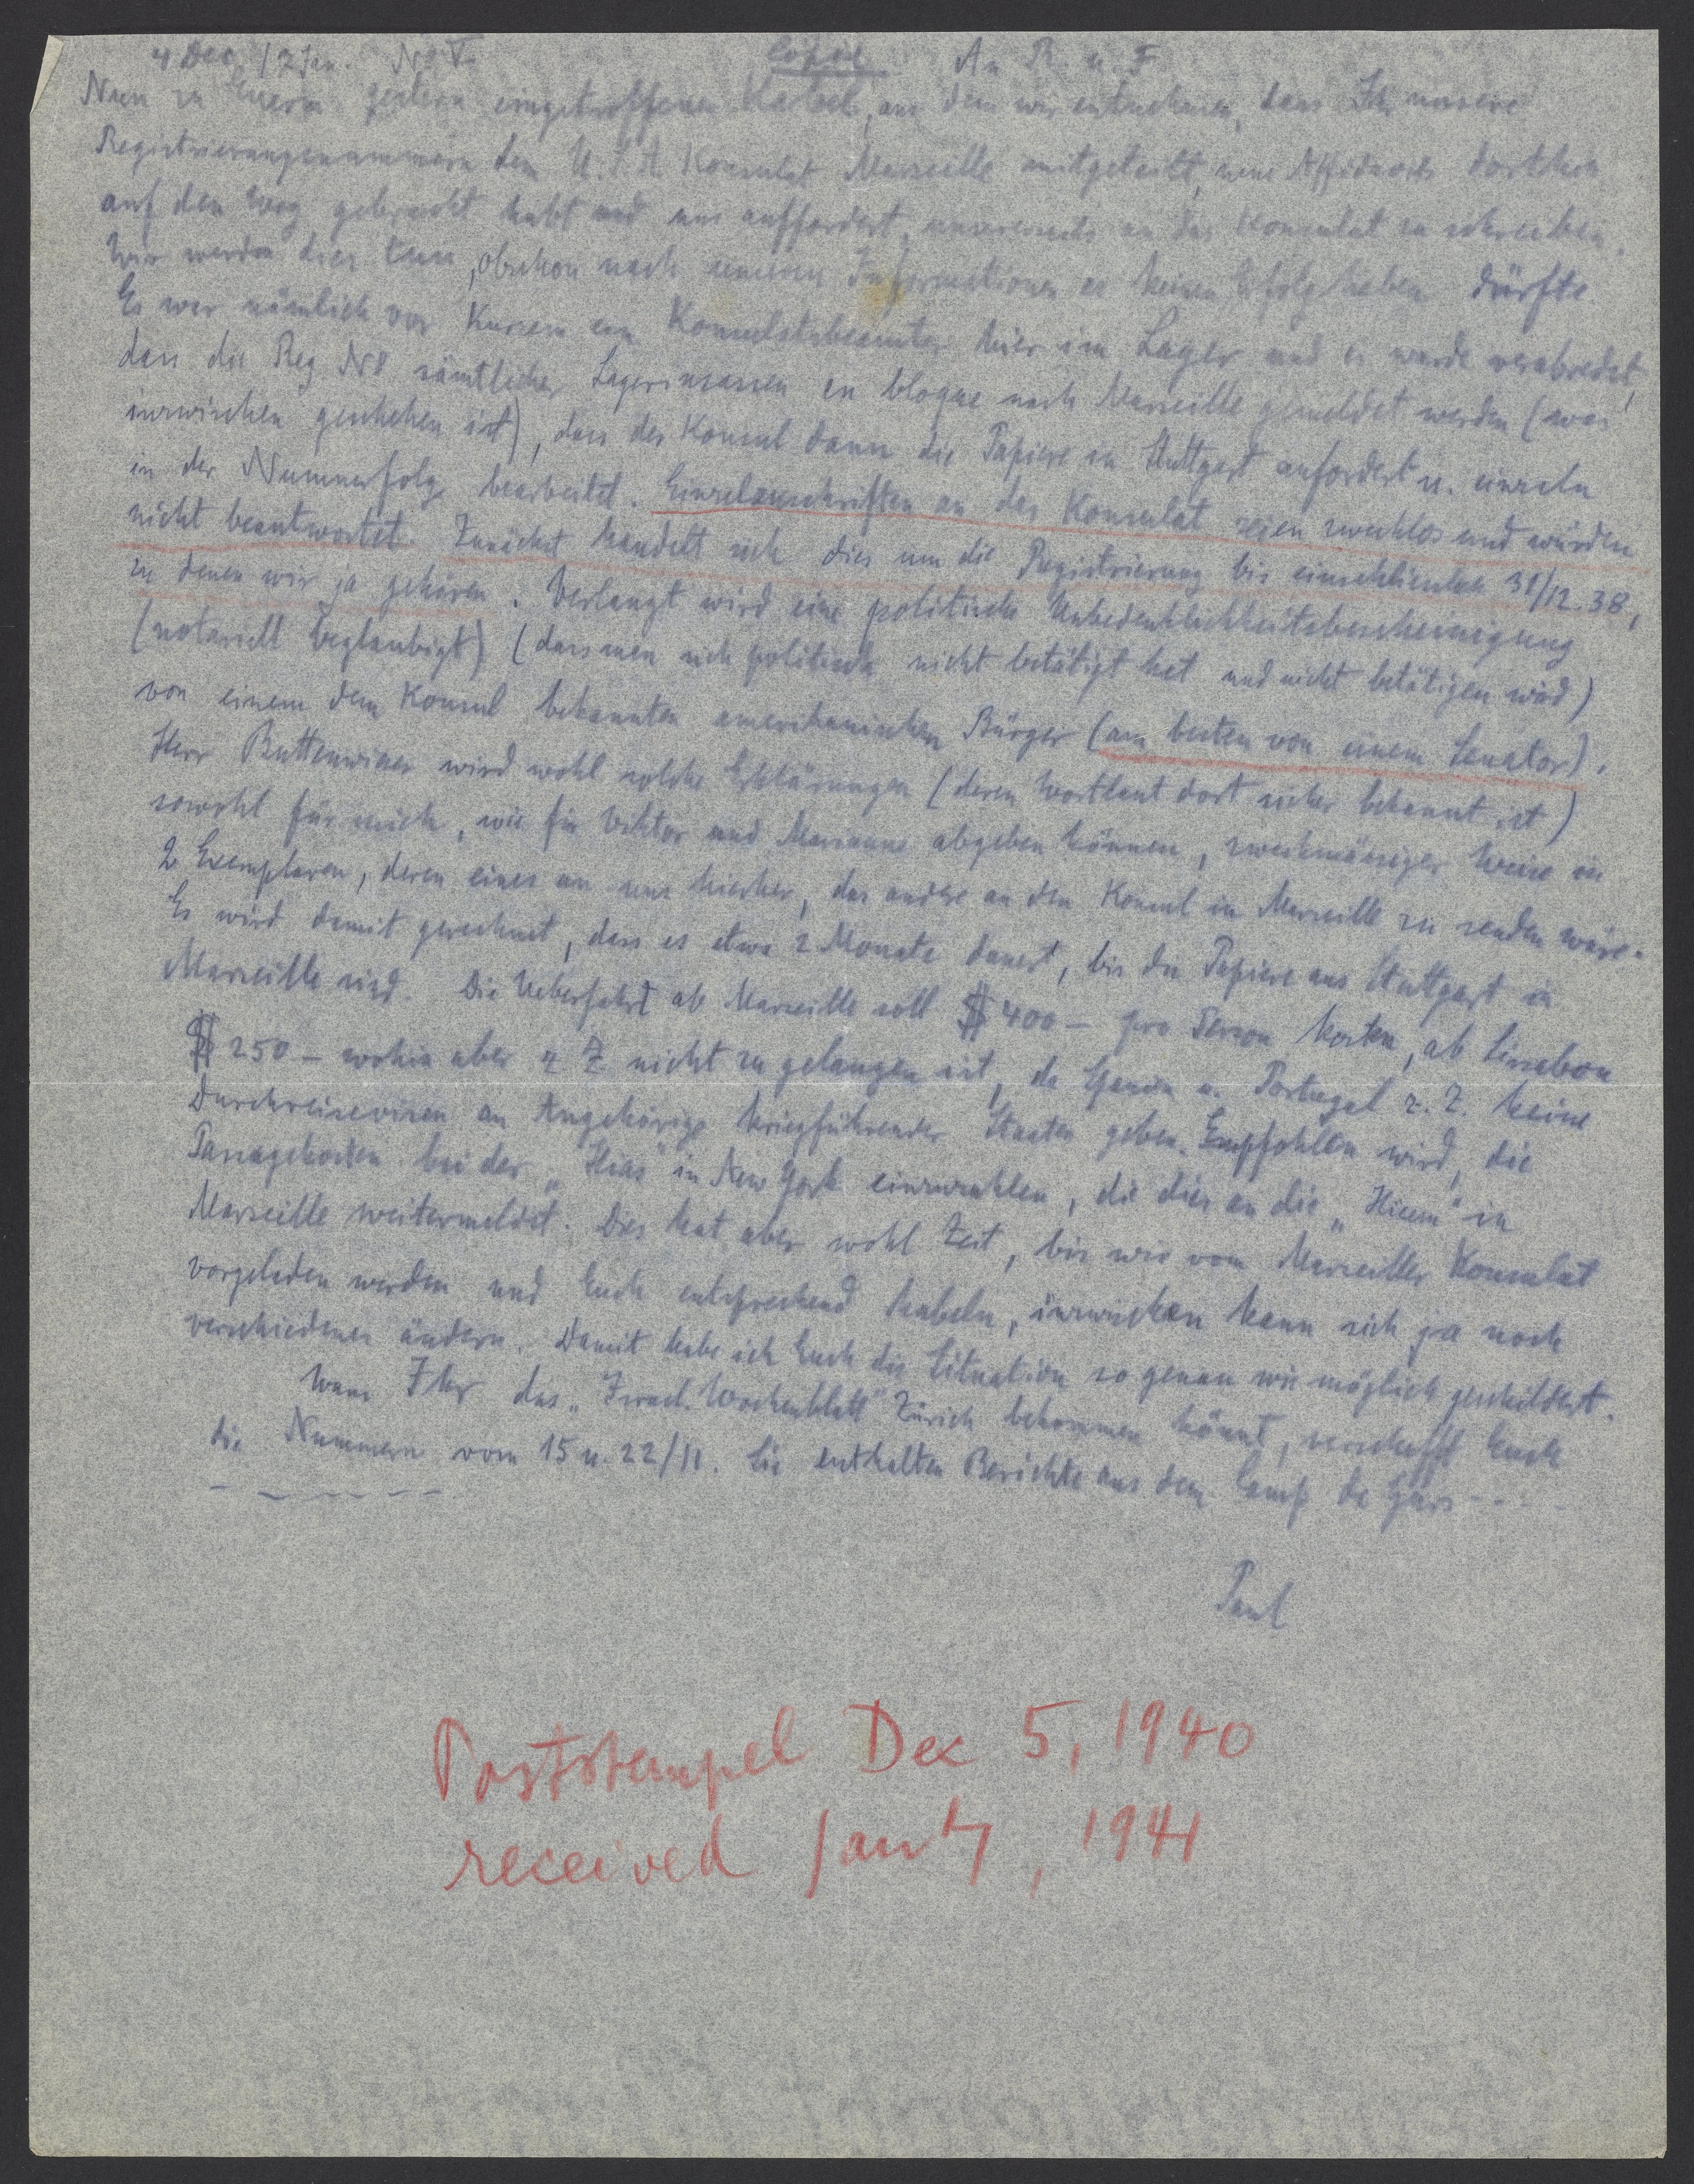 4 Dec. / 2 Jan. No V. Copie An R. u. F.
Nun zu Euerm gestern eingetroffenen Kabel, aus dem wir entnehmen, dass Ihr unsere
Registrierungsnummern dem U.S.A. Konsulat Marseille mitgeteilt, neue Affidavits dorthin
auf den Weg gebracht habt und uns auffordert, unsererseits an das Konsulat zu schreiben.
Wir werden dies tun, obschon nach unseren Informationen es keinen Erfolg haben dürfte.
Es war nämlich vor Kurzem ein Konsulatsbeamter hier im Lager und es wurde verabredet,
dass die Reg. No sämtlicher Lagerinsassen en bloque nach Marseille gemeldet werden (was
inzwischen geschehen ist), dass der Konsul dann die Papiere in Stuttgart anfordert u. einzeln
in der Nummerfolge bearbeitet. Einzelzuschriften an das Konsulat seien zwecklos und würden
nicht beantwortet. Zunächst handelt sich dies um die Registrierung bis einschliesslich 31/12.38,
zu denen wir ja gehören. Verlangt wird eine politische Unbedenklichkeitsbescheinigung
(notariell beglaubigt) (dass man sich politisch nicht betätigt hat und nicht betätigen wird)
von einem dem Konsul bekannten amerikanischen Bürger (am besten von einem Senator).
Herr Buttenwieser wird wohl solche Erklärungen (deren Wortlaut dort sicher bekannt ist)
sowohl für mich, wie für Viktor und Marianne abgeben können, zweckmässiger Weise in
2 Exemplaren, deren eines an uns hierher, das andere an den Konsul in Marseille zu senden wäre.
Es wird damit gerechnet, dass es etwa 2 Monate dauert, bis die Papiere aus Stuttgart in
Marseille sind. Die Ueberfahrt ab Marseille soll $ 400 – pro Person kosten, ab Lissabon
$ 250 – wohin aber z Z nicht zu gelangen ist, da Spanien u. Portugal z. Z. keine
Durchreisevisen an Angehörige kriegführender Staaten geben. Empfohlen wird, die
Passagekosten bei der „Hias" in New York einzuzahlen, die dies an die „Hicem" in
Marseille weitermeldet. Das hat aber wohl Zeit, bis wir vom Marseiller Konsulat
vorgeladen werden und Euch entsprechend kabeln, inzwischen kann sich ja noch
verschiedenes ändern. Damit habe ich Euch die Situation so genau wie möglich geschildert.
Wenn Ihr das „Israel. Wochenblatt" Zürich bekommen könnt, verschafft Euch
die Nummern vom 15 u. 22/11. Sie enthalten Berichte aus dem Camp de Gurs - - - -
- - - - - -
Paul
Poststempel Dec 5, 1940
received Jan 4, 1941